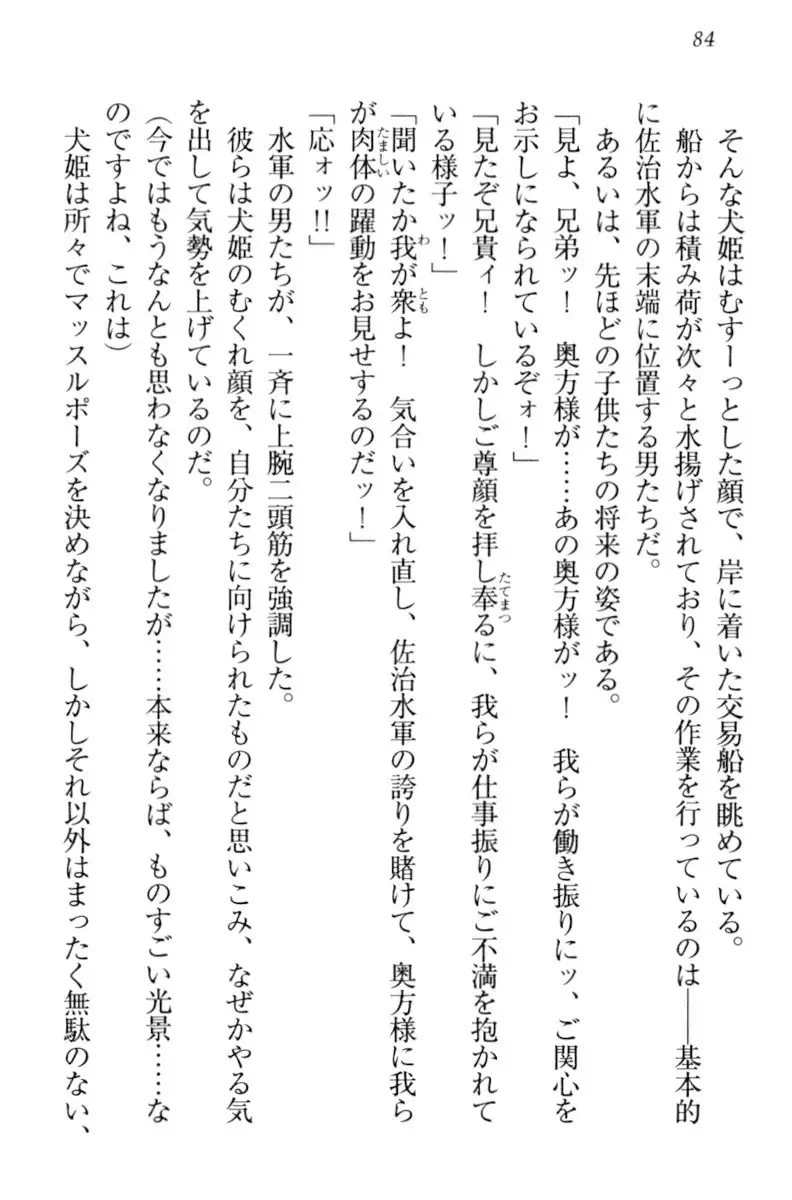 84
そんな犬姫はむすーっとした顔で、岸に着いた交易船を眺めている。
船からは積み荷が次々と水揚げされており、その作業を行っているのは――基本的
に佐治水軍の末端に位置する男たちだ。
あるいは、先ほどの子供たちの将来の姿である。
「見よ、兄弟ッ！　奥方様が……あの奥方様がッ！　我らが働き振りにッ、ご関心を
お示しになられているぞォ！」
「見たぞ兄貴ィ！　しかしご尊顔を拝し奉るに、我らが仕事振りにご不満を抱かれて
いる様子ッ！」
「聞いたか我が衆よ！　気合いを入れ直し、佐治水軍の誇りを賭けて、奥方様に我ら
が肉体の躍動をお見せするのだッ！」
「応ォッ!!」
水軍の男たちが、一斉に上腕二頭筋を強調した。
彼らは犬姫のむくれ顔を、自分たちに向けられたものだと思いこみ、なぜかやる気
を出して気勢を上げているのだ。
（今ではもうなんとも思わなくなりましたが……本来ならば、ものすごい光景……な
のですよね、これは）
犬姫は所々でマッスルポーズを決めながら、しかしそれ以外はまったく無駄のない、